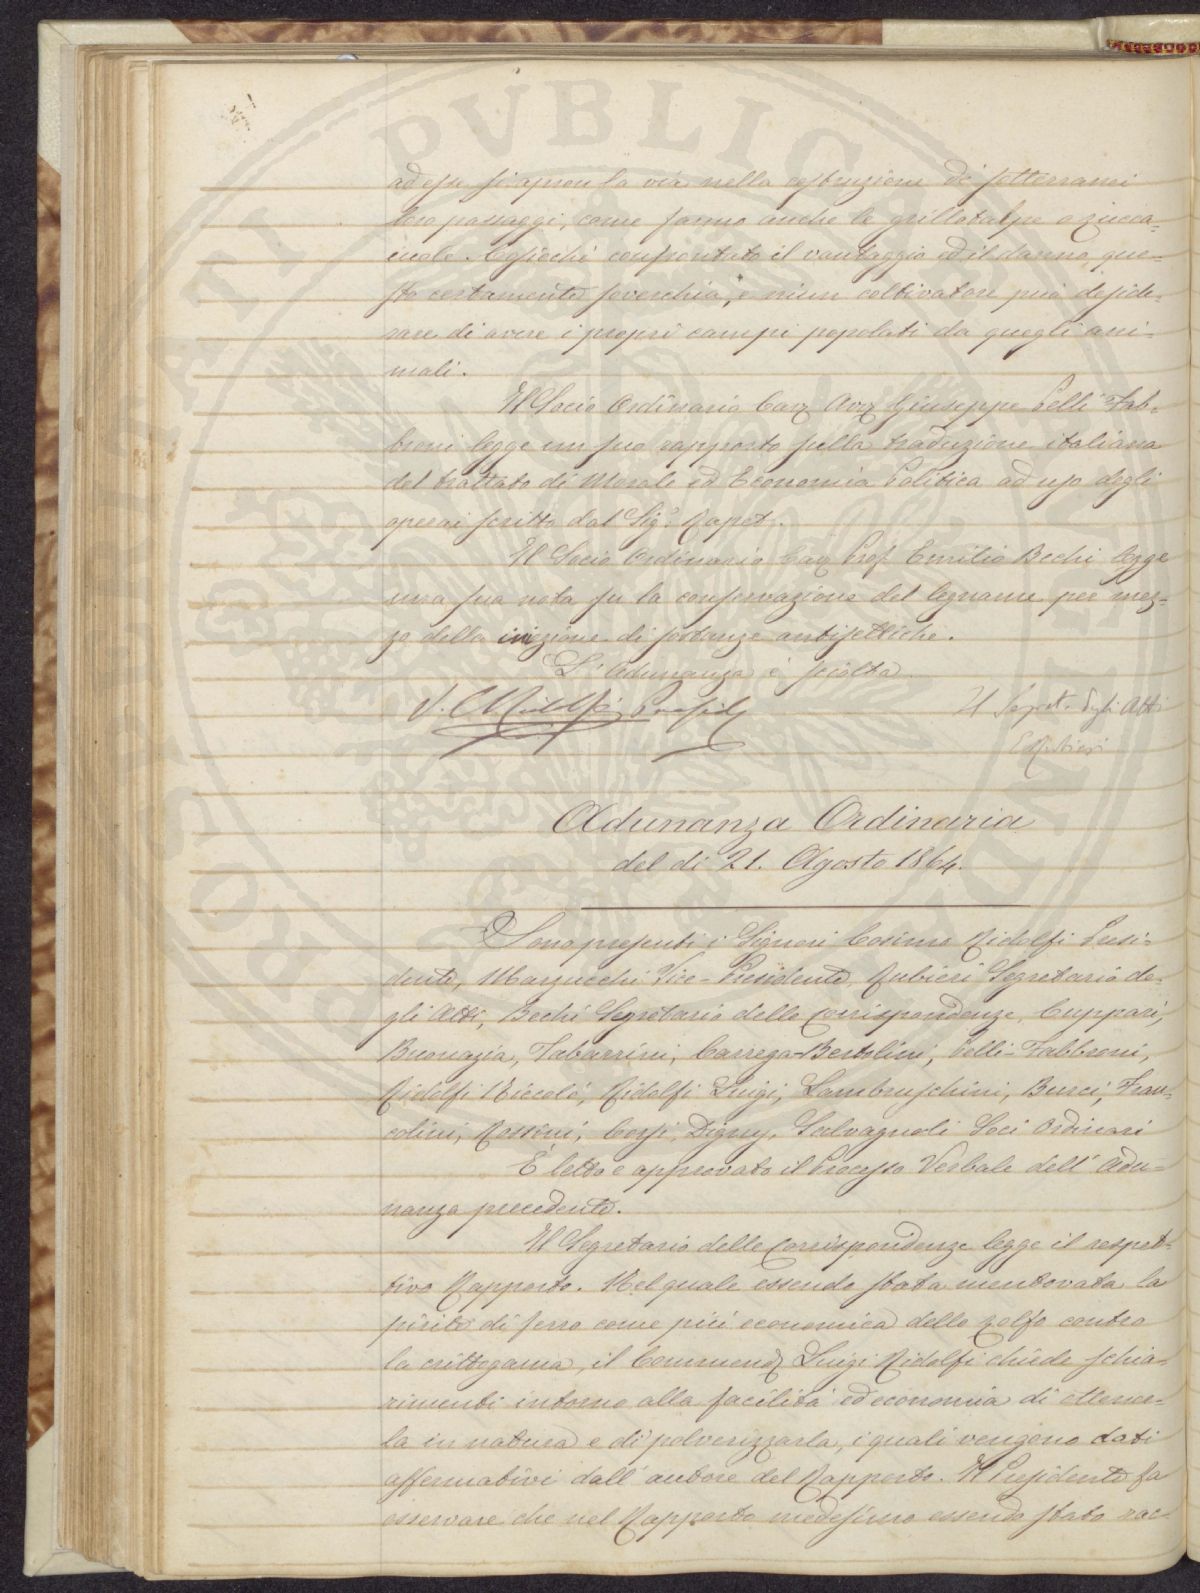 ad esse si apron la via nella costruzione dei sotterranei
loro passaggi, come fanno anche le grillotalpe o zucca=
iuole. Cosicchè confrontato il vantaggio ed il danno que=
sto certamente soverchia, e niun coltivatore può deside=
rare di avere i proprî campi popolati da quegli ani=
mali.
Il Socio Ordinario Cav. Avv. Giuseppe Pelli Fab=
broni legge un suo rapporto sulla traduzione italiana
del trattato di Morale ed Economia Politica ad uso degli
operai scritto dal Sig.r Rapet.
Il Socio Ordinario Cav. Prof. Emilio Bechi legge
una sua nota su la conservazione del legname per mez=
zo della iniezione di sostanze antisettiche.
L'Adunanza è sciolta
V. C. Ridolfi Presid.
Il Segret. degli Atti
E. Rubieri
Adunanza Ordinaria
del dì 21. Agosto 1864.
Sono presenti i Signori Cosimo Ridolfi Presi=
dente, Marzucchi Vice-Presidente, Rubieri Segretario de=
gli Atti, Bechi Segretario delle Corrispondenze, Cuppari,
Buonazia, Tabarrini, Carrega-Bertolini, Pelli-Fabbroni,
Ridolfi Niccolò, Ridolfi Luigi, Lambruschini, Burci, Fran=
colini, Rossini, Corsi, Digny, Salvagnoli Soci Ordinari
È letto e approvato il Processo Verbale dell'Adu=
nanza precedente.
Il Segretario delle Corrispondenze legge il respet=
tivo Rapporto. Nel quale essendo stata mentovata la
pirite di ferro come più economica dello zolfo contro
la crittogama, il Commend. Luigi Ridolfi chiede schia=
rimenti intorno alla facilità ed economia di ottener=
la in natura e di polverizzarla, i quali vengono dati
affermativi dall'autore del Rapporto. Il Presidente fa
osservare che nel Rapporto medesimo essendo stato rac=
PVBLICA